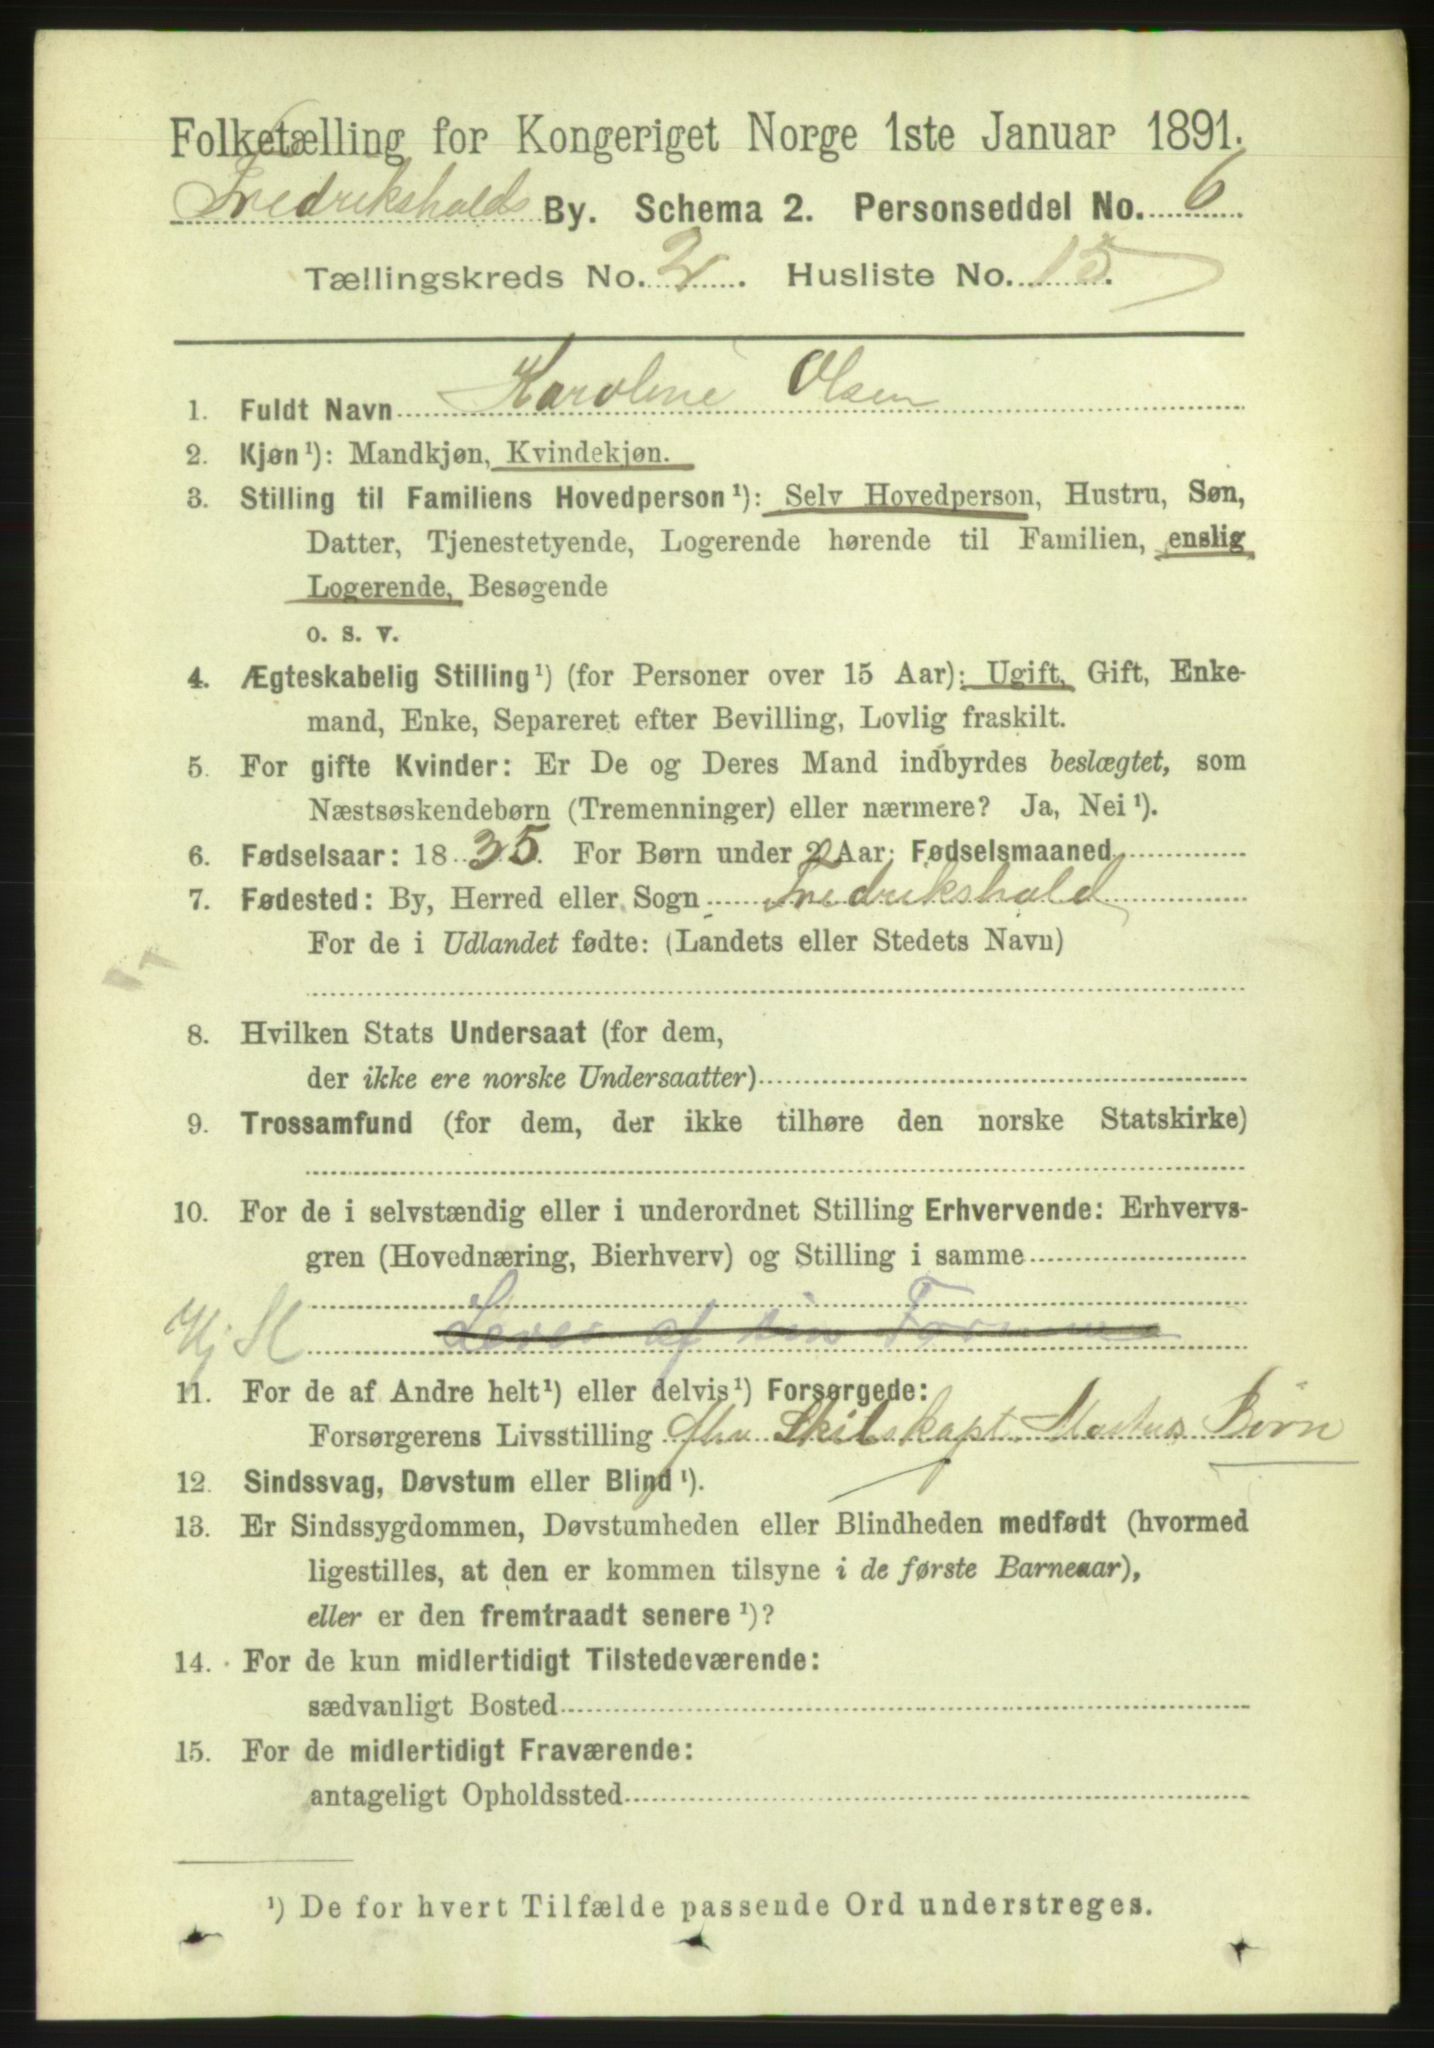 Folketælling for Kongeriget Norge 1ste Januar 1891.
Fredrikshalds By. Schema 2. Personseddel No. 6
Tællingskreds No. 2. Husliste No. 15.
1. Fuldt Navn Karoline Olsen
2. Kjøn ¹): Mandkjøn, Kvindekjøn.
3. Stilling til Familiens Hovedperson ¹): Selv Hovedperson, Hustru, Søn,
Datter, Tjenestetyende, Logerende hørende til Familien, enslig
Logerende, Besøgende
o. s. v.
4. Ægteskabelig Stilling ¹) (for Personer over 15 Aar): Ugift, Gift, Enke-
mand, Enke, Separeret efter Bevilling, Lovlig fraskilt.
5. For gifte Kvinder: Er De og Deres Mand indbyrdes beslægtet, som
Næstsøskendebørn (Tremenninger) eller nærmere? Ja, Nei ¹).
6. Fødselsaar: 1835. For Børn under 2 Aar: Fødselsmaaned
7. Fødested: By, Herred eller Sogn Fredrikshald
For de i Udlandet fødte: (Landets eller Stedets Navn)
8. Hvilken Stats Undersaat (for dem,
der ikke ere norske Undersaatter)
9. Trossamfund (for dem, der ikke tilhøre den norske Statskirke)
10. For de i selvstændig eller i underordnet Stilling Erhvervende: Erhvervs-
gren (Hovednæring, Bierhverv) og Stilling i samme
Lever af sin Formue
11. For de af Andre helt ¹) eller delvis ¹) Forsørgede:
Forsørgerens Livsstilling Skibskapt. Børn
12. Sindssvag, Døvstum eller Blind ¹).
13. Er Sindssygdommen, Døvstumheden eller Blindheden medfødt (hvormed
ligestilles, at den er kommen tilsyne i de første Barneaar),
eller er den fremtraadt senere ¹)?
14. For de kun midlertidigt Tilstedeværende:
sædvanligt Bosted
15. For de midlertidigt Fraværende:
antageligt Opholdssted
¹) De for hvert Tilfælde passende Ord understreges.